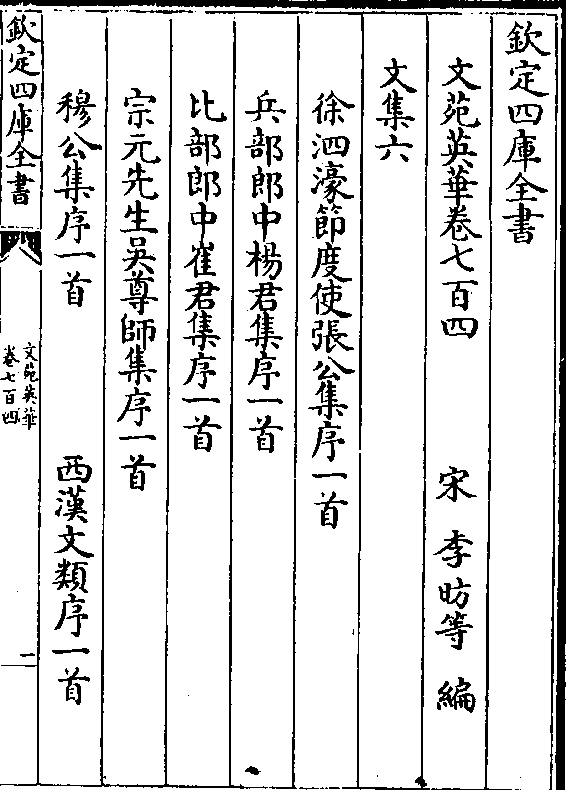 欽定四庫全書
文苑英華卷七百四 宋 李昉等 編
文集六
徐泗濠節度使張公集序一首
兵部郎中楊君集序一首
比部郎中崔君集序一首
宗元先生吳尊師集序一首
穆公集序一首 西漢文類序一首
欽定四庫全書
文苑英華
卷七百四
一